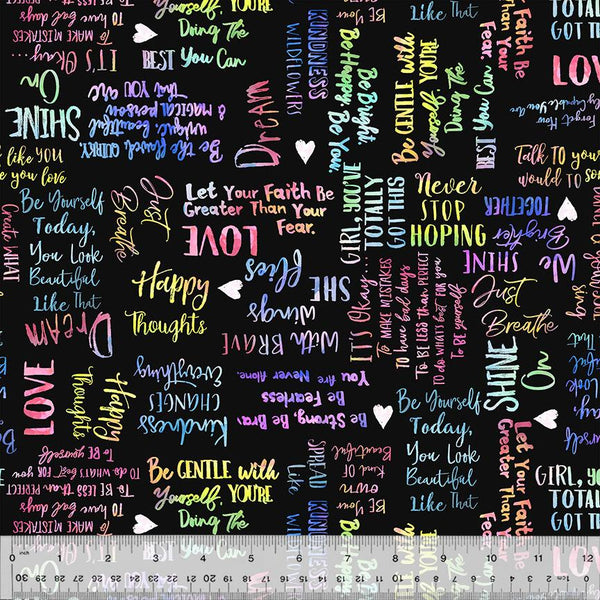 KINDNESS
WILDFLOWERS
Be Bright.
Be Happy
Be You.
Be GENTLE with
Yourself, YOU'RE
Doing The
BEST You Can
Like That
Let Your Faith Be
Greater Than Your
Fear.
LOVE
IT'S Okay...
TO MAKE MISTAKES
Doing The
BEST You Can
SHINE
On
Be the flawed, QUIRKY,
unique, beautiful
& MAGICAL person
that YOU are
DREAM
Forget How
TALK TO your
would TO
like YOU
you love
Be Yourself
Today,
You Look
Beautiful
Like That
Just
Breathe
Let Your Faith Be
Greater Than Your
Fear.
LOVE
GIRL, YOU'VE
TOTALLY
GOT THIS
Never
STOP
HOPING
TOGETHER
Brighter
SHINE
We
Create WHAT
DREAM
Happy
Thoughts
With BRAVE
wings
SHE
flies
IT'S Okay...
TO MAKE MISTAKES
TO have bad days
TO BE less than PERFECT
TO do WHATS best FOR YOU
TO Be yourself
Just
Breathe
sing
LOVE
Happy
Thoughts
Kindness
CHANGES
Everything
You Are Never Alone
Be Fearless
Be Strong, Be Brave
Be Yourself
Today,
You Look
Beautiful
Like That
SHINE
On
Let Your Faith Be
Greater Than Your
Fear.
GIRL,
TOTALLY
GOT THIS
TO Be yourself
TO do WHATS best FOR YOU
TO BE less than PERFECT
TO have bad days
TO MAKE MISTAKES
IT'S Okay...
Be GENTLE with
Yourself, YOU'RE
Doing The
BEST You Can
SPREAD
KINDNESS
Like
WILDFLOWERS
Be Bright.
Be Happy
Be You.
Be Your
own
Kind OF
Beautiful
0 INCH 1 2 3 4 5 6 7 8 9 10 11 12
30 29 28 27 26 25 24 23 22 21 20 19 18 17 16 15 14 13 12 11 10 9 8 7 6 5 4 3 2 1 0